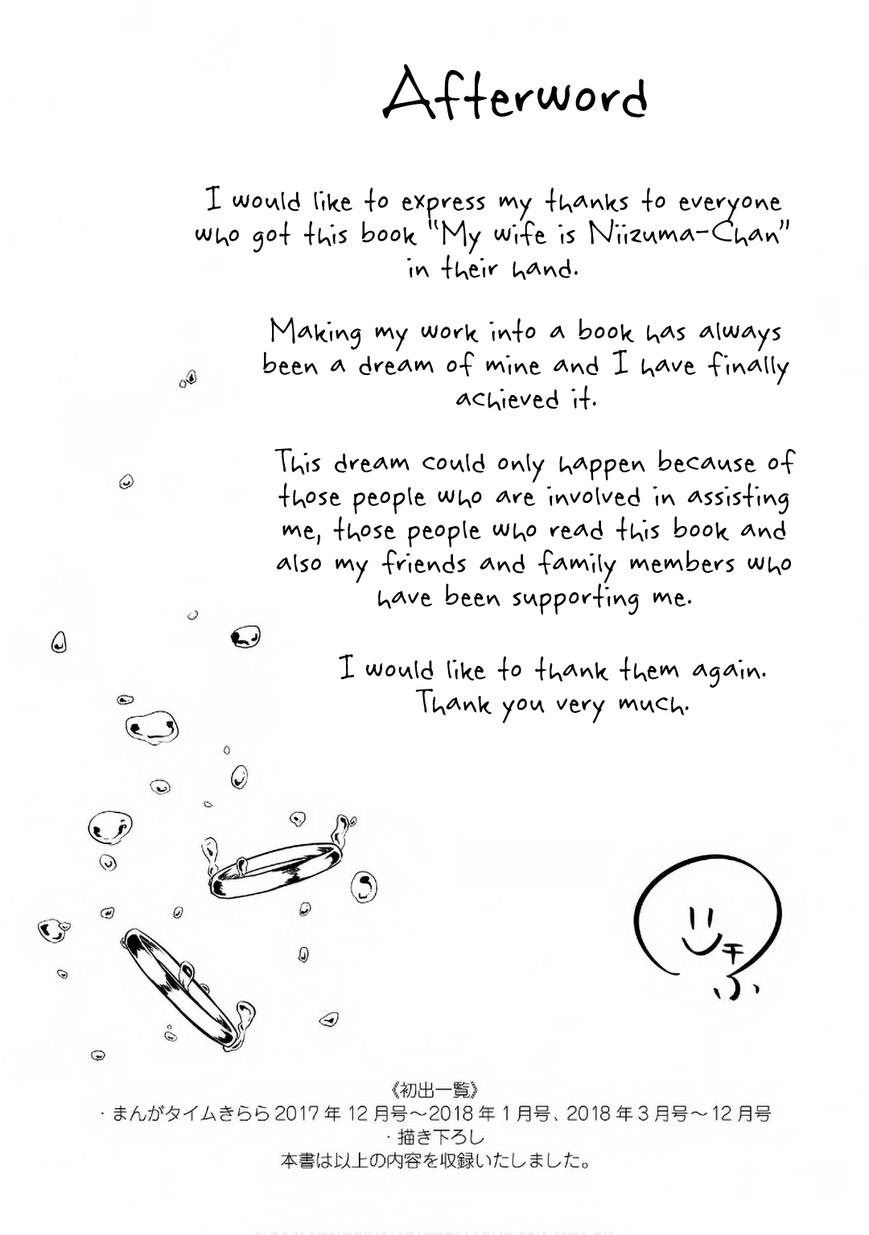 Afterword
I would like to express my thanks to everyone
who got this book "My wife is Niizuma-Chan"
in their hand.
Making my work into a book has always
been a dream of mine and I have finally
achieved it.
This dream could only happen because of
those people who are involved in assisting
me, those people who read this book and
also my friends and family members who
have been supporting me.
I would like to thank them again.
Thank you very much.
《初出一覧》
・まんがタイムきらら2017年12月号〜2018年1月号、2018年3月号〜12月号
・描き下ろし
本書は以上の内容を収録いたしました。